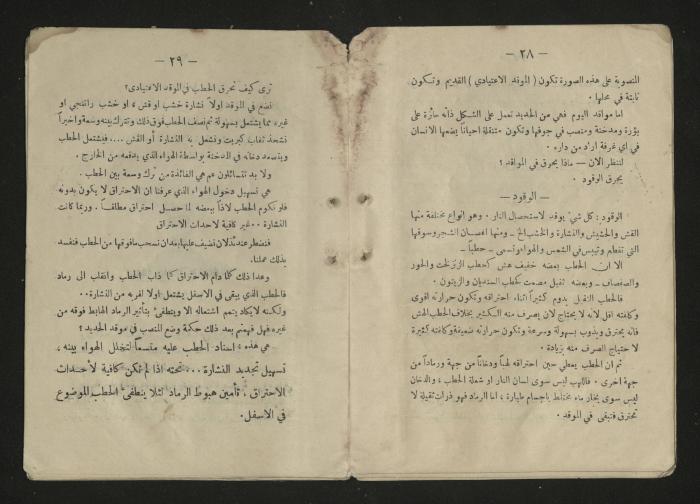 — ٢٨ —
المنصوبة على هذه الصورة تكون ( الموقد الاعتيادي ) القديم وتكون
ثابتة في محلها .
اما مواقد اليوم فهي من الحديد تعمل على الشكل ذاته سائرة على
بؤرة ومدخنة ومنصب في جوفها وتكون متنقلة احياناً يضعها الانسان
في اي غرفة اراد من داره .
لننظر الآن — ماذا يحرق في المواقد ؟
يحرق الوقود .
— الوقود —
الوقود : كل شيء يوقد لاستحصال النار . وهو انواع مختلفة منها
القش والحشيش والنشارة والخشب الخ – ومنها اغصان الشجر وسوقها
التي تقطع وتيبس في الشمس والهواء وتسمى – حطباً –
الا ان الحطب بعضه خفيف هش كحطب الزنزلخت والحور
والصفصاف – وبعضه ثقيل مصمت كحطب السنديان والزيتون .
فالحطب الثقيل يدوم كثيراً اثناء احتراقه وتكون حرارته اقوى
وكلفته اقل لانه لا يحتاج لان يصرف منه الكثير بخلاف الحطب الهش
فانه يحترق ويذوب بسهولة وسرعة وتكون حرارته ضعيفة وكلفته كثيرة
لاحتياج الصرف منه بزيادة .
ثم ان الحطب يعطي حين احتراقه لهباً ودخاناً من جهة ورماداً من
جهة اخرى . فاللهب ليس سوى لسان النار او شعلة الحطب ، والدخان
ليس سوى بخار ماء مختلط باجسام طيارة ، اما الرماد فهو ذرات ثقيلة لا
تحترق فتبقى في الموقد .
— ٢٩ —
ترى كيف نحرق الحطب في الموقد الاعتيادي ؟
نضع في الموقد اولاً نشارة خشب او قش او خشب راتنجي او
غيره مما يشتعل بسهولة ثم نصف الحطب فوق ذلك ونترك بينه وسعة واخيراً
نشحذ ثقاب كبريت ونشعل به النشارة أو القش .... فيشتعل الحطب
ويتصعد دخانه في المدخنة بواسطة الهواء الذي يدفعه من الخارج .
ولا بد تتسائلون عم هي الفائدة من ترك وسعة بين الحطب .
هي تسهيل دخول الهواء الذي عرفنا ان الاحتراق لا يكون بدونه
فلو نكوم الحطب لاذاً ببعضه لما حصل احتراق مطلقاً . وربما كانت
النشارة .. غير كافية لاحداث الاحتراق
فنضطر عندئذ لان نضيف عليها بعد ان نسحب ما فوقها من الحطب فنفسد
بذلك عملنا .
وهذا ذلك كلما دام الاحتراق كلما ذاب الحطب وانقلب الى رماد
فالحطب الذي يبقى في الاسفل يشتعل اولاً لقربه من النشارة ..
ولكنه لا يكاد يتم اشتعاله الا وينطفئ بتأثير الرماد الهابط فوقه من
غيره فهل فهمتم بعد ذلك حكمة وضع المنصب في موقد الحديد ؟
هي هذه : اسناد الحطب عليه متسماً لتخلل الهواء بينه ،
تسهيل تجديد النشارة ... تحته اذا لم تكن كافية لاحداث
الاحتراق ، تأمين هبوط الرماد لئلا ينطفئ الحطب الموضوع
في الاسفل .